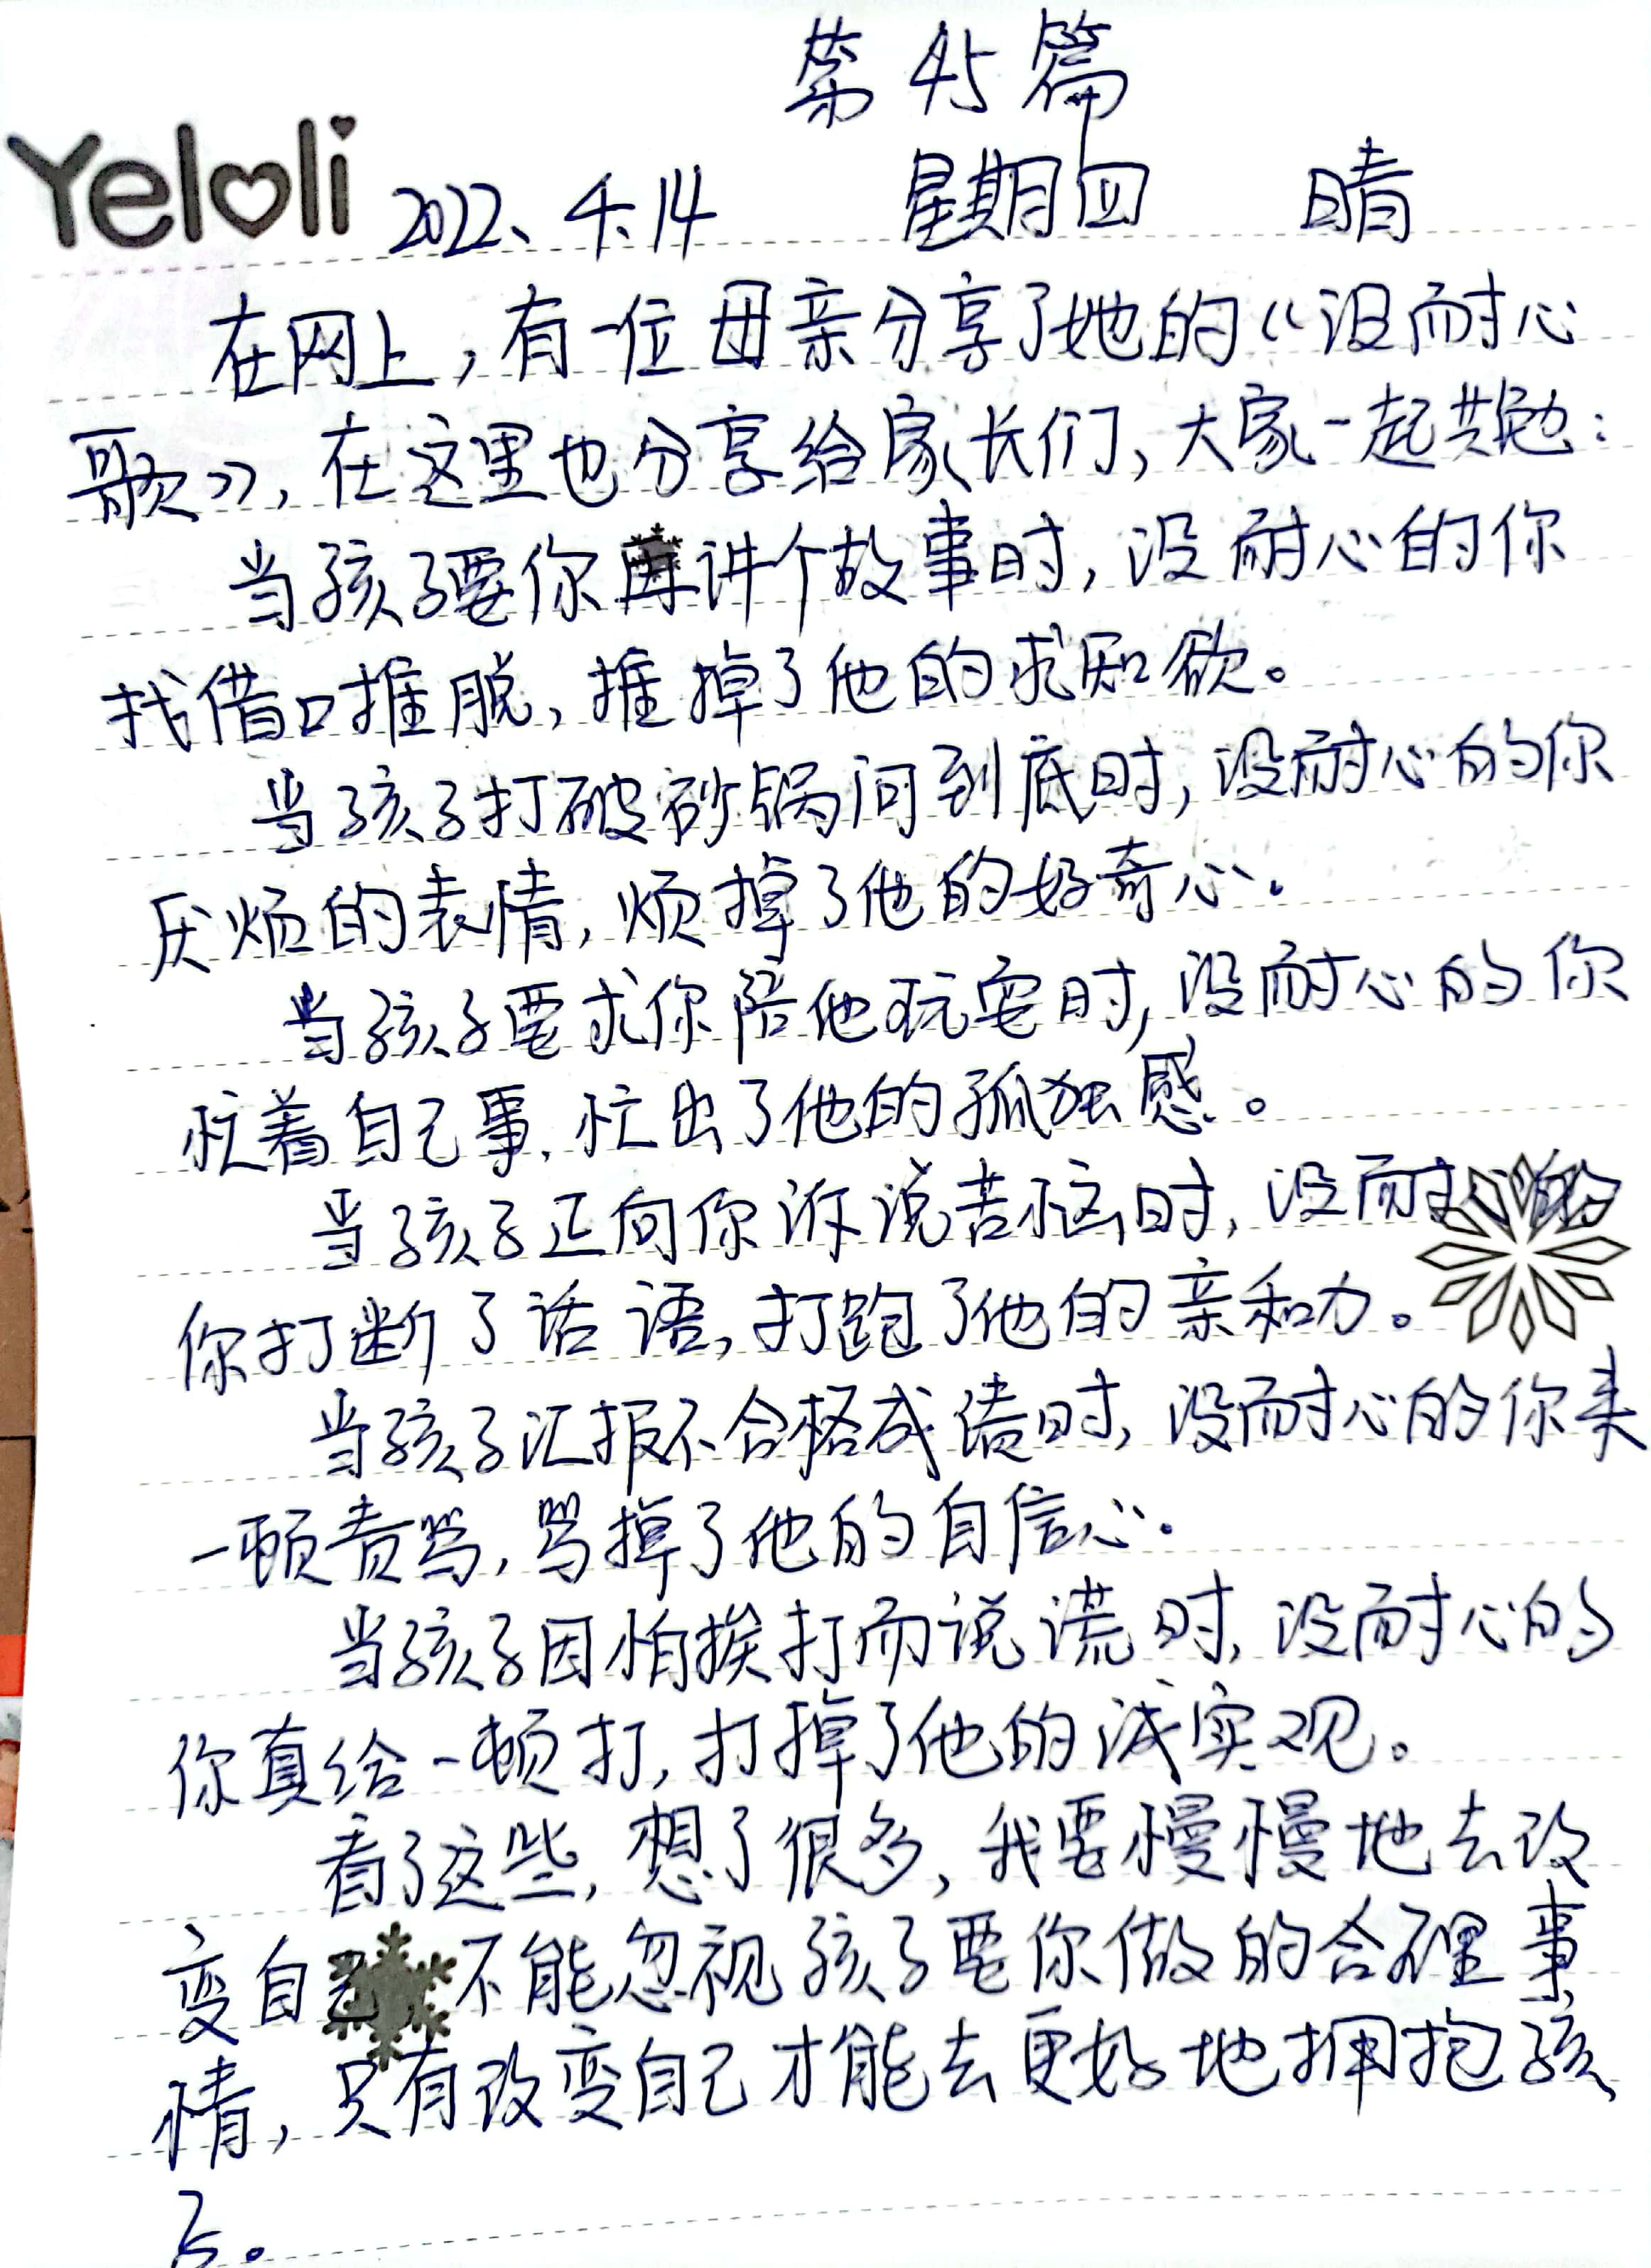 第45篇
Yeloli 2022、4.14 星期四 晴
在网上,有一位母亲分享了她的《没耐心
歌》,在这里也分享给家长们,大家一起共勉:
当孩子要你再讲个故事时,没耐心的你
找借口推脱,推掉了他的求知欲。
当孩子打破砂锅问到底时,没耐心的你
厌烦的表情,烦掉了他的好奇心。
当孩子要求你陪他玩耍时,没耐心的你
忙着自己事,忙出了他的孤独感。
当孩子正向你诉说苦恼时,没耐心的
你打断了话语,打跑了他的亲和力。
当孩子汇报不合格成绩时,没耐心的你来
一顿责骂,骂掉了他的自信心.
当孩子因怕挨打而说谎时,没耐心的
你真给一顿打,打掉了他的诚实观。
看了这些,想了很多,我要慢慢地去改
变自己 不能忽视孩子要你做的合理事
情,只有改变自己才能去更好地拥抱孩
子。